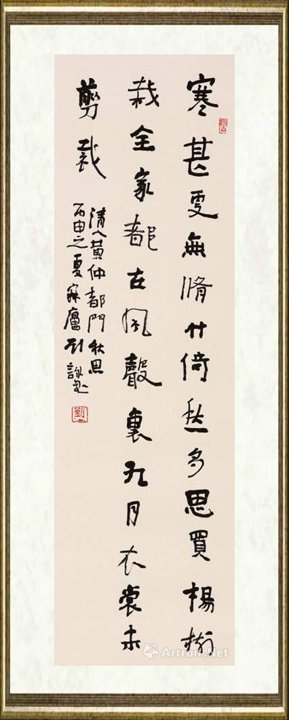 寒甚更無脩竹倚愁多思買楊樹
栽全家都在風聲裏九月衣裳未
剪裁
清人黃仲都門秋思
之夏寐廬劉